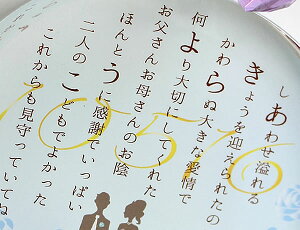 しあわせ溢れる
きょうを迎えられたの
かわらぬ大きな愛情で
何より大切にしてくれた
お父さんお母さんのお陰
ほんとうに感謝でいっぱい
二人のこどもでよかった
これからも見守っていてね